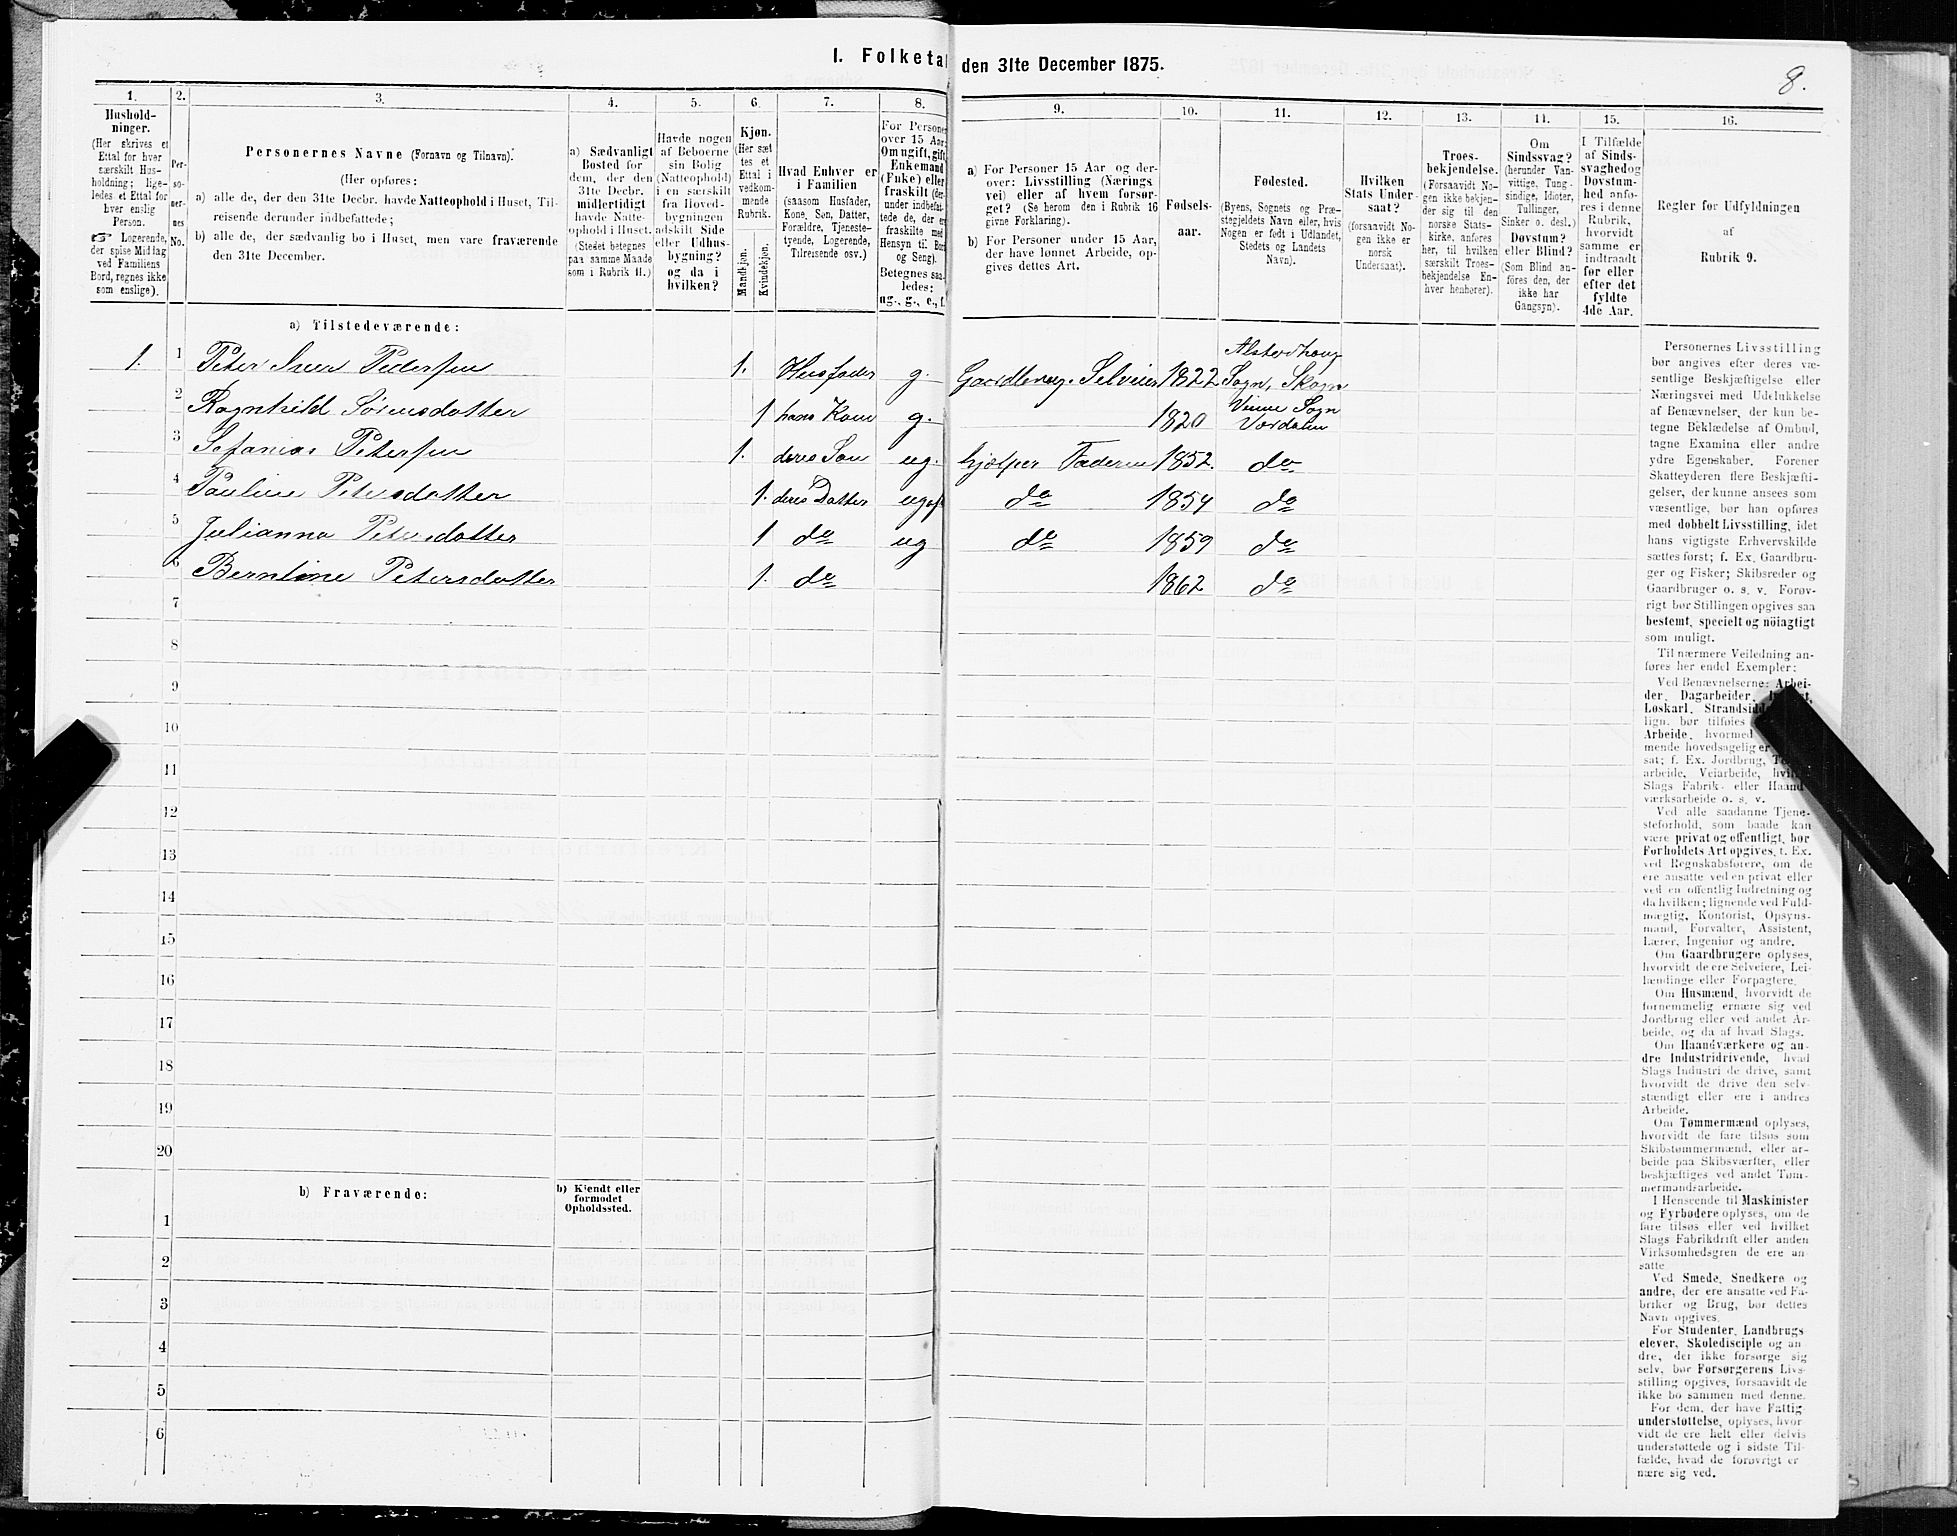 I. Folketal den 31te December 1875.
8.
1.
Hushold-
ninger.
(Her skrives et
Ettal for hver
særskilt Hus-
holdning; lige-
ledes et Ettal for
hver enslig
Person.
☞ Logerende,
der spise Middag
ved Familiens
Bord, regnes ikke
som enslige).
2.
Per-
so-
ner-
nes
No.
3.
Personernes Navne (Fornavn og Tilnavn).
(Her opføres:
a) alle de, der den 31te Decbr. havde Natteophold i Huset, Til-
reisende derunder indbefattede;
b) alle de, der sædvanlig bo i Huset, men vare fraværende
den 31te December.
4.
a) Sædvanligt
Bosted for
dem, der den
31te Decbr.
midlertidigt
havde Natte-
ophold i Huset.
(Stedet betegnes
paa samme Maade
som i Rubrik 11.)
5.
Havde nogen
af Beboerne
sin Bolig
(Natteophold)
i en særskilt
fra Hoved-
bygningen
adskilt Side
eller Udhus-
bygning?
og da i
hvilken?
6.
Kjøn.
(Her sæt
tes et
Ettal i
vedkom-
mende
Rubrik.
Mandkjøn.
Kvindekjøn.
7.
Hvad Enhver er
i Familien
(saasom Husfader,
Kone, Søn, Datter,
Forældre, Tjeneste-
tyende, Logerende,
Tilreisende osv.)
8.
For Personer
over 15 Aar:
Om ugift, gift,
Enkemand
(Enke) eller
fraskilt (der-
under indbefat-
tede de, der er
fraskilte med
Hensyn til Bord
og Seng).
Betegnes saa-
ledes:
ug., g., e., f.
9.
a) For Personer 15 Aar og der-
over: Livsstilling (Nærings
vei) eller af hvem forsør-
get? (Se herom den i Rubrik 16
givne Forklaring).
b) For Personer under 15 Aar,
der have lønnet Arbeide, op-
gives dettes Art.
10.
Fødsels-
aar.
11.
Fødested.
(Byens, Sognets og Præ-
stegjeldets Navn eller, hvis
Nogen er født i Udlandet,
Stedets og Landets
Navn).
12.
Hvilken
Stats Under-
saat?
(forsaavidt No-
gen ikke er
norsk
Undersaat).
13.
Troes-
bekjendelse.
(Forsaavidt No-
gen ikke bekjen-
der sig til den
norske Stats-
kirke, anføres
her, til hvilken
særskilt Troes-
bekjendelse En-
hver henhører).
14.
Om
Sindssvag?
(herunder Van-
vittige, Tung-
sindige, Idioter,
Tullinger,
Sinker o. desl.)
Døvstum?
eller Blind?
(Som Blind an-
føres den, der
ikke har
Gangsyn).
15.
I Tilfælde
af Sinds-
svaghed og
Døvstum-
hed anfø-
res i denne
Rubrik,
hvorvidt
samme er
indtraadt
før eller
efter det
fyldte
4de Aar.
16.
Regler for Udfyldningen
af
Rubrik 9.
a) Tilstedeværende:
1. 1 Peter Petersen 1. Husfader g. Gaardbrug. Selveier 1822 Alstedhoug Sogn, Skogn
2 Ragnhild Sørensdatter 1 hans Kone g. 1820 Vinne Sogn Værdalen
3 Sefanias Petersen 1. deres Søn ug. hjælper Faderen 1852. do
4 Pauline Petersdatter 1. deres Datter ug do 1854 do
5 Julianna Petersdatter 1 do ug do 1859 do
6 Berntine Petersdatter 1. do 1862 do
7
8
9
10
11
12
13
14
15
16
17
18
19
20
b) Fraværende:
b) Kjendt eller
formodet
Opholdssted.
1
2
3
4
5
6
Personernes Livsstilling
bør angives efter deres væ-
sentlige Beskjæftigelse eller
Næringsvei med Udelukkelse
af Benævnelser, der kun be-
tegne Beklædelse af Ombud,
tagne Examina eller andre
ydre Egenskaber. Forener
Skatteyderen flere Beskjæfti-
gelser, der kunne ansees som
væsentlige, bør han opføres
med dobbelt Livsstilling, idet
hans vigtigste Erhvervskilde
sættes først; f. Ex. Gaardbru-
ger og Fisker; Skibsreder og
Gaardbruger o. s. v. Forøv-
rigt bør Stillingen opgives saa
bestemt, specielt og nöiagtigt
som muligt.
Til nærmere Veiledning an-
føres her endel Exempler:
Ved Benævnelserne: Arbei-
der, Dagarbeider,
Løskarl, Strandsidd
lign. bør tilføies
Arbeide, hvormed
mende hovedsagelig er
sat; f. Ex. Jordbrug,
arbeide, Veiarbeide,
Slags Fabrik- eller Haand-
værksarbeide o. s. v.
Ved alle saadanne Tjene-
steforhold, som baade kan
være privat og offentligt, bør
Forholdets Art opgives, f. Ex.
ved Regnskabsførere, om de
ere ansatte ved en privat eller
ved en offentlig Indretning og
da hvilken; lignende ved Fuld-
mægtig, Kontorist, Opsyns-
mand, Forvalter, Assistent,
Lærer, Ingeniør og andre.
Om Gaardbrugere oplyses,
hvorvidt de ere Selveiere, Lei-
lændinge eller Forpagtere.
Om Husmænd, hvorvidt de
fornemmelig ernære sig ved
Jordbrug eller ved andet Ar-
beide, og da af hvad Slags.
Om Haandværkere og an-
dre Industridrivende, hvad
Slags Industri de drive, samt
hvorvidt de drive den selv-
stændigt eller ere i andres
Arbeide.
Om Tømmermænd oplyses,
hvorvidt de fare tilsøs som
Skibstømmermænd, eller ar-
beide paa Skibsværfter, eller
beskjæftiges ved andet Tøm-
mermandsarbeide.
I Henseende til Maskinister
og Fyrbødere oplyses, om de
fare tilsøs eller ved hvilket
Slags Fabrikdrift eller anden
Virksomhedsgren de ere an-
satte
Ved Smede, Snedkere og
andre, der ere ansatte ved Fa-
briker og Brug, bør dettes
Navn opgives.
For Studenter, Landbrugs
elever, Skoledisciple og an
dre, der ikke forsørge sig
selv, bør Forsørgerens Livs-
stilling opgives, forsaavidt de
ikke bo sammen med denne.
For dem, der have Fattig
understøttelse, oplyses, hvor
vidt de ere helt eller delvis
understøttede og i sidste Til-
fælde, hvad de forøvrigt er
nære sig ved.